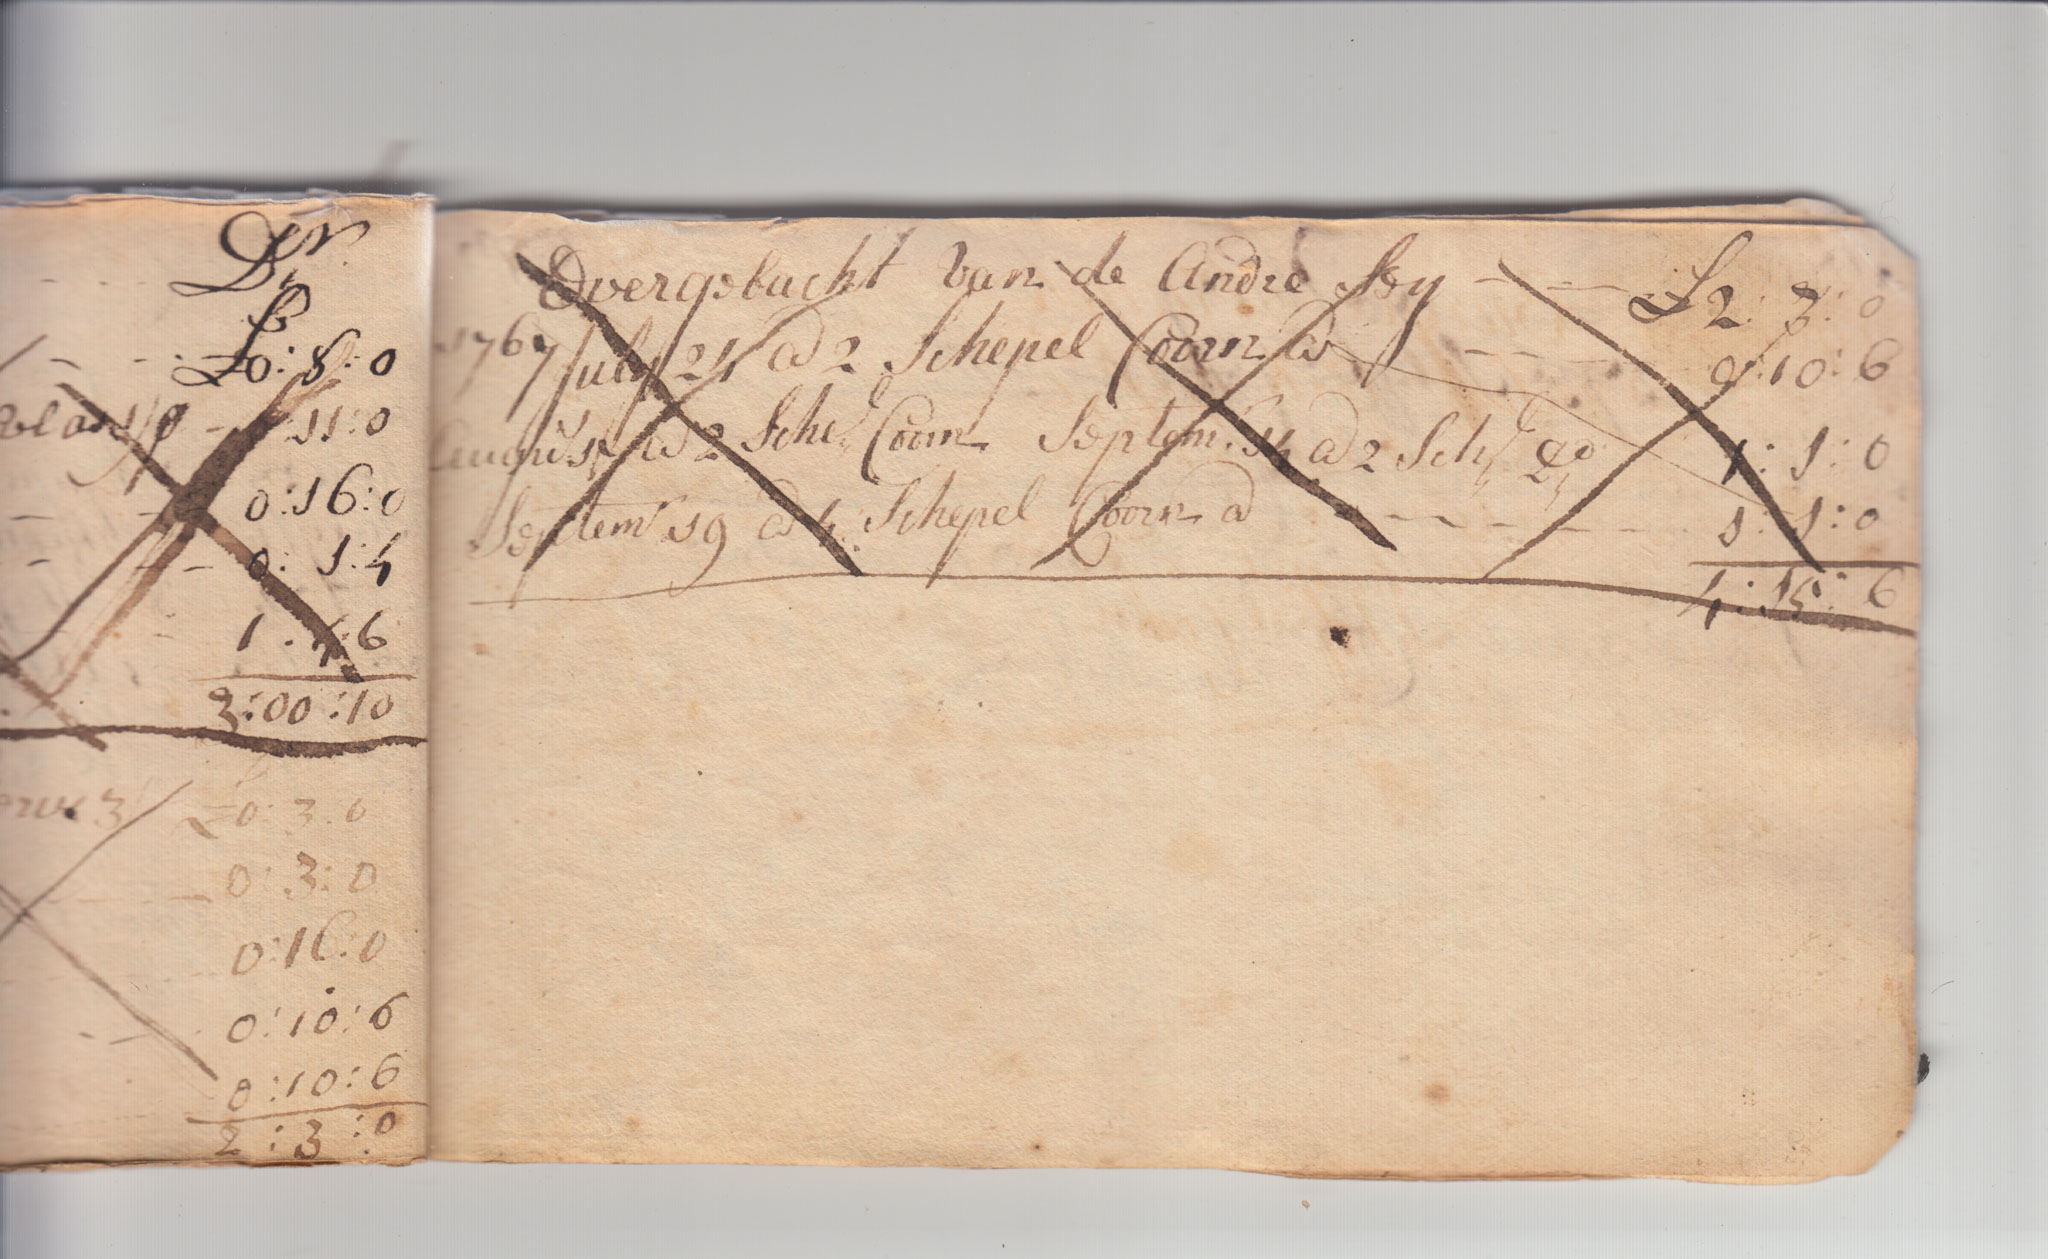 Dr
£
£0:8:0
11:0
0:16:0
0:1:4
1:4:6
3:00:10
3 £0:3:0
0:3:0
0:16:0
0:10:6
0:10:6
2:3:0
Overgebacht van de Andre Sey £2:3:0
1767 July 21 ad 2 Schepel Coorn ad 0:10:6
August ad 2 Schel Coorn Septem. 14 ad 2 Sch. do 1:1:0
Septemr 19 ad 4 Schepel Coorn a 1:1:0
4:15:6